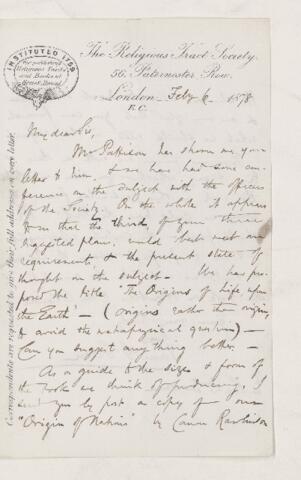 INSTITUTED 1799
For publishing
Religious Tracts
and Books at
The Religious Tract Society,
56, Paternoster Row,
London Feby 6 1878
E.C.
My dear Sir,
Mr Pattison has shown me your
letter to him, & we have had some con-
ference on the subject with the officers
of the Society. On the whole it appears
to us that the third, of your three
suggested plans, would best meet our
requirements, & the present state of
thought on the subject. We has pro-
posed the title "The Origins of Life upon
the Earth" – (origins rather than origin
to avoid the metaphysical question) –
Can you suggest anything better. –
As a guide to the size & form of
the books we think of producing, I
send you by post a copy of our
"Origin of Nations" by Canon Rawlinson
Correspondents are requested to give their full address in every letter.